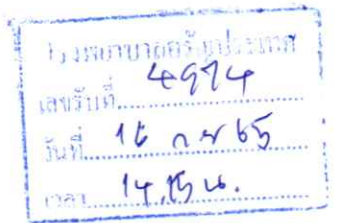 โรงพยาบาลอรัญประเทศ
เลขรับที่ 4974
วันที่ 16 ก.ย 65
เวลา 14.15 น.